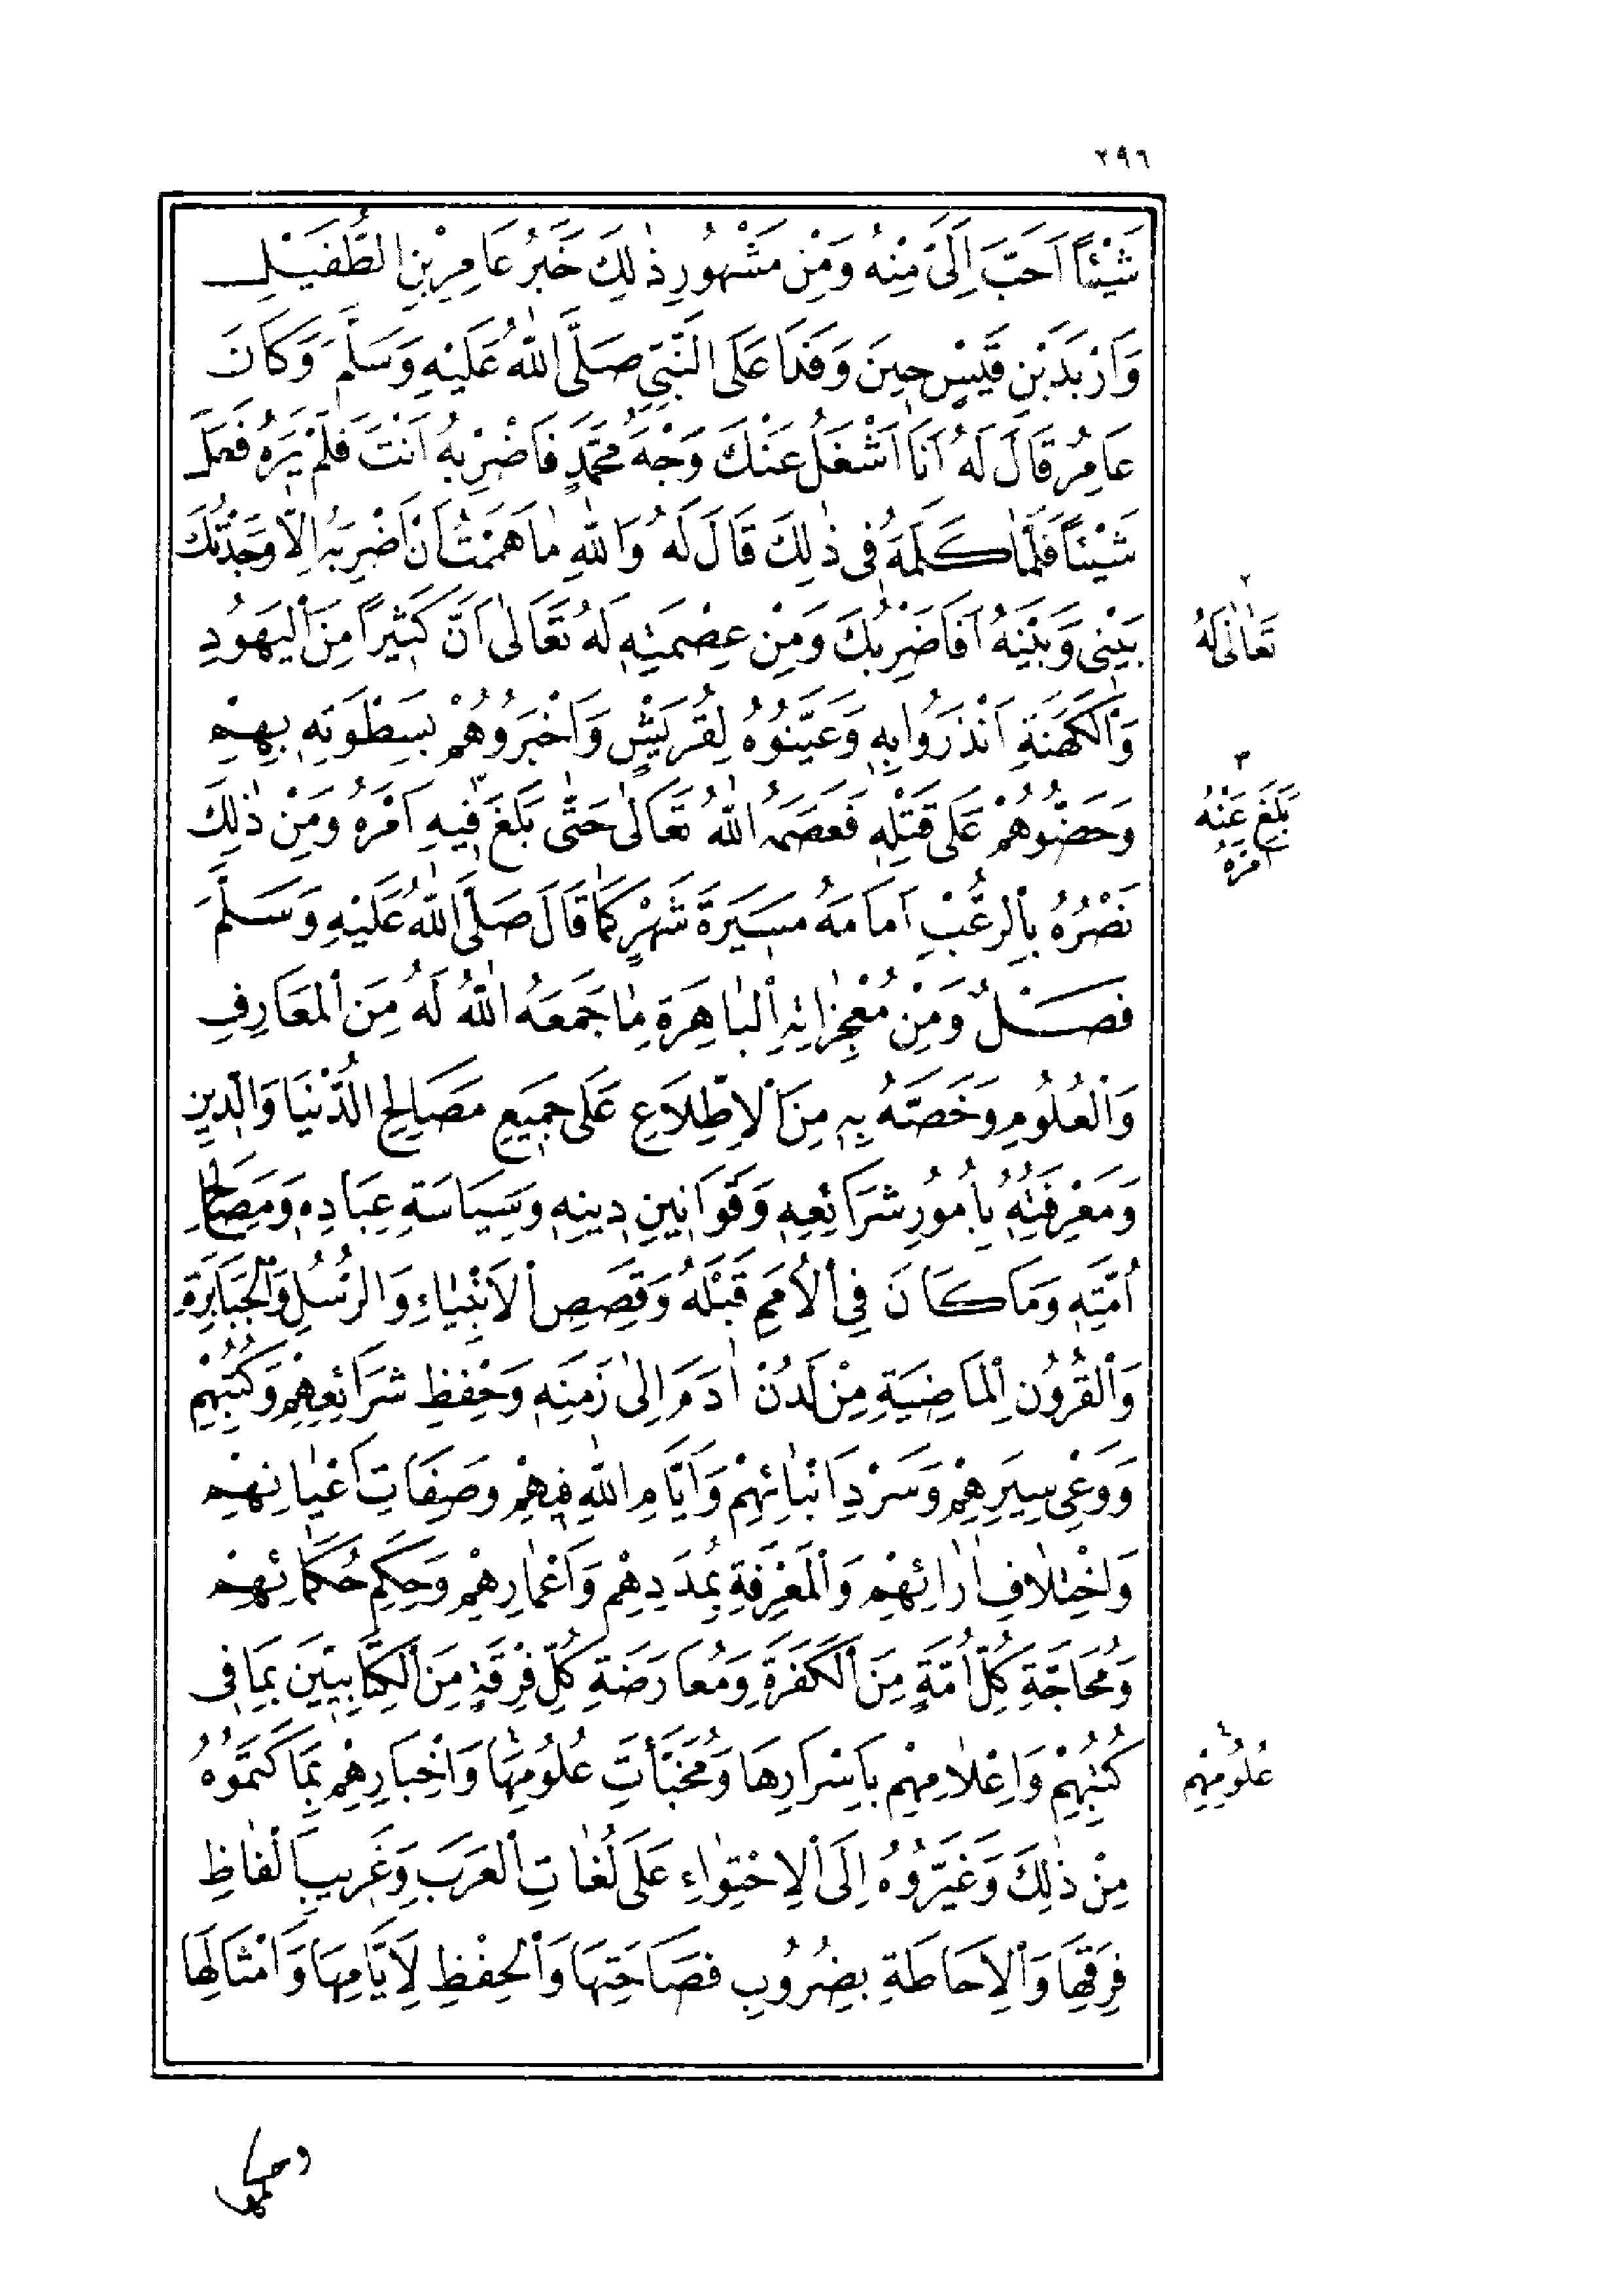 ٢٩٦
شَيْئًا اَحَبَّ اِلَىَّ مِنْهُ وَمِنْ مَشْهُورِ ذٰلِكَ خَبَرُ عَامِرِ بْنِ الطُّفَيْلِ
وَاَرْبَدَ بْنِ قَيْسٍ حِينَ وَفَدَا عَلَى النَّبِيِّ صَلَّى اللّٰهُ عَلَيْهِ وَسَلَّمَ وَكَانَ
عَامِرٌ قَالَ لَهُ اَنَا اَشْغَلُ عَنْكَ وَجْهَ مُحَمَّدٍ فَاضْرِبْهُ اَنْتَ فَلَمْ يَرَهُ فَعَلَ
شَيْئًا فَلَمَّا كَلَّمَهُ فِى ذٰلِكَ قَالَ لَهُ وَاللّٰهِ مَا هَمَمْتُ اَنْ اَضْرِبَهُ اِلَّا وَجَدْتُكَ
بَيْنِى وَبَيْنَهُ اَفَاَضْرِبُكَ وَمِنْ عِصْمَتِهِ لَهُ تَعَالٰى اَنَّ كَثِيرًا مِنَ الْيَهُودِ
وَالْكَهَنَةِ اَنْذَرُوا بِهِ وَعَيَّنُوهُ لِقُرَيْشٍ وَاَخْبَرُوهُمْ بِسَطْوَتِهِ بِهِمْ
وَحَضُّوهُمْ عَلَى قَتْلِهِ فَعَصَمَهُ اللّٰهُ تَعَالٰى حَتَّى بَلَغَ فِيهِ اَمْرَهُ وَمِنْ ذٰلِكَ
نَصْرُهُ بِالرُّعْبِ اَمَامَهُ مَسِيرَةَ شَهْرٍ كَمَا قَالَ صَلَّى اللّٰهُ عَلَيْهِ وَسَلَّمَ
فَصْلٌ وَمِنْ مُعْجِزَاتِهِ الْبَاهِرَةِ مَا جَمَعَهُ اللّٰهُ لَهُ مِنَ الْمَعَارِفِ
وَالْعُلُومِ وَخَصَّهُ بِهِ مِنَ الْاِطِّلَاعِ عَلَى جَمِيعِ مَصَالِحِ الدُّنْيَا وَالدِّينِ
وَمَعْرِفَتِهِ بِاُمُورِ شَرَائِعِهِ وَقَوَانِينِ دِينِهِ وَسِيَاسَةِ عِبَادِهِ وَمَصَالِحِ
اُمَّتِهِ وَمَا كَانَ فِى الْاُمَمِ قَبْلَهُ وَقِصَصِ الْاَنْبِيَاءِ وَالرُّسُلِ وَالْجَبَابِرَةِ
وَالْقُرُونِ الْمَاضِيَةِ مِنْ لَدُنْ اٰدَمَ اِلٰى زَمَنِهِ وَحِفْظِ شَرَائِعِهِمْ وَكُتُبِهِمْ
وَوَعْىِ سِيَرِهِمْ وَسَرْدِ اَنْبَائِهِمْ وَاَيَّامِ اللّٰهِ فِيهِمْ وَصِفَاتِ اَعْيَانِهِمْ
وَاخْتِلَافِ اٰرَائِهِمْ وَالْمَعْرِفَةِ بِمُدَدِهِمْ وَاَعْمَارِهِمْ وَحِكَمِ حُكَمَائِهِمْ
وَمُحَاجَّةِ كُلِّ اُمَّةٍ مِنَ الْكَفَرَةِ وَمُعَارَضَةِ كُلِّ فِرْقَةٍ مِنَ الْكِتَابِيِّينَ بِمَا فِى
كُتُبِهِمْ وَاِعْلَامِهِمْ بِاَسْرَارِهَا وَمُخَبَّأٰتِ عُلُومِهَا وَاِخْبَارِهِمْ بِمَا كَتَمُوهُ
مِنْ ذٰلِكَ وَغَيَّرُوهُ اِلَى الْاِحْتِوَاءِ عَلَى لُغَاتِ الْعَرَبِ وَغَرِيبِ اَلْفَاظِ
فِرَقِهَا وَالْاِحَاطَةِ بِضُرُوبِ فَصَاحَتِهَا وَالْحِفْظِ لِاَيَّامِهَا وَاَمْثَالِهَا
٢
تَعَالٰى لَهُ
٣
بَلَغَ عَنْهُ
اَمْرَهُ
٤
عُلُومِهِمْ